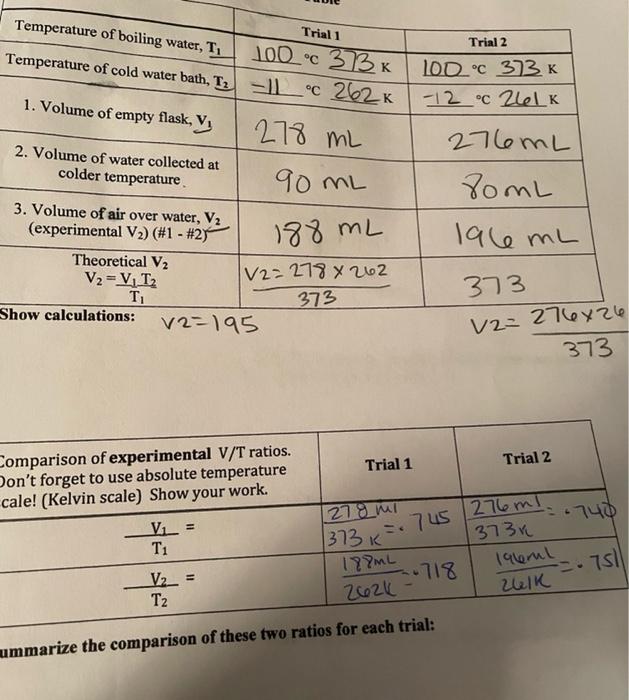 Trial 1 Trial 2
Temperature of boiling water, T1 100 °C 373 K 100 °C 373 K
Temperature of cold water bath, T2 -11 °C 262 K -12 °C 261 K
1. Volume of empty flask, V1 278 mL 276 mL
2. Volume of water collected at
colder temperature. 90 mL 80 mL
3. Volume of air over water, V2
(experimental V2) (#1 - #2) 188 mL 196 mL
Theoretical V2
V2 = V1 T2
T1
V2 = 278 x 262
373
373
Show calculations: V2=195
V2= 276x26
373
Comparison of experimental V/T ratios.
Don't forget to use absolute temperature
cale! (Kelvin scale) Show your work.
Trial 1 Trial 2
V1 =
T1
278 ml
373 K = .745
276 ml
373K = .740
V2 =
T2
188mL
262K = .718
196ml
261K = .751
ummarize the comparison of these two ratios for each trial: